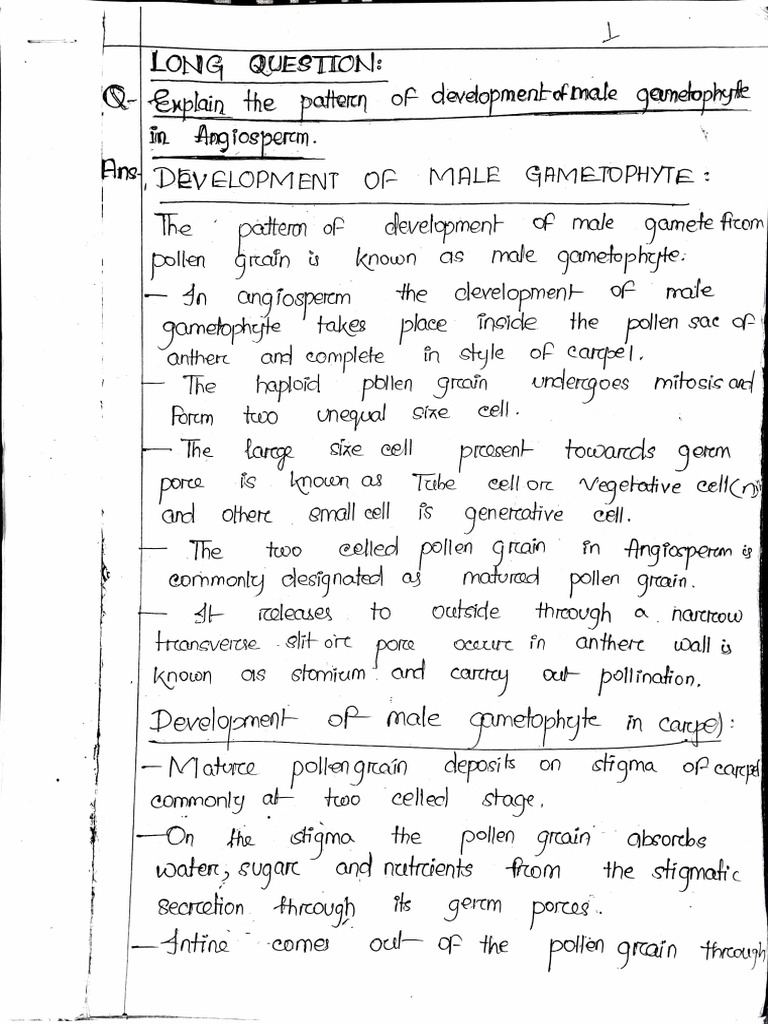 1
LONG QUESTION:
Q- Explain the pattern of development of male gametophyte
in Angiosperm.
Ans. DEVELOPMENT OF MALE GAMETOPHYTE:
The pattern of development of male gamete from
pollen grain is known as male gametophyte.
- In angiosperm the development of male
gametophyte takes place inside the pollen sac of
anther and complete in style of carpel.
- The haploid pollen grain undergoes mitosis and
form two unequal size cell.
- The large size cell present towards germ
pore is known as Tube cell or Vegetative cell
and other small cell is generative cell.
- The two celled pollen grain in Angiosperm is
commonly designated as matured pollen grain.
- It releases to outside through a narrow
transverse slit or pore occur in anther wall is
known as stomium and carry out pollination.
Development of male gametophyte in carpel:
- Mature pollen grain deposits on stigma of carpel
commonly at two celled stage.
- On the stigma the pollen grain absorbs
water, sugar and nutrients from the stigmatic
secretion through its germ pores.
- Intine comes out of the pollen grain through